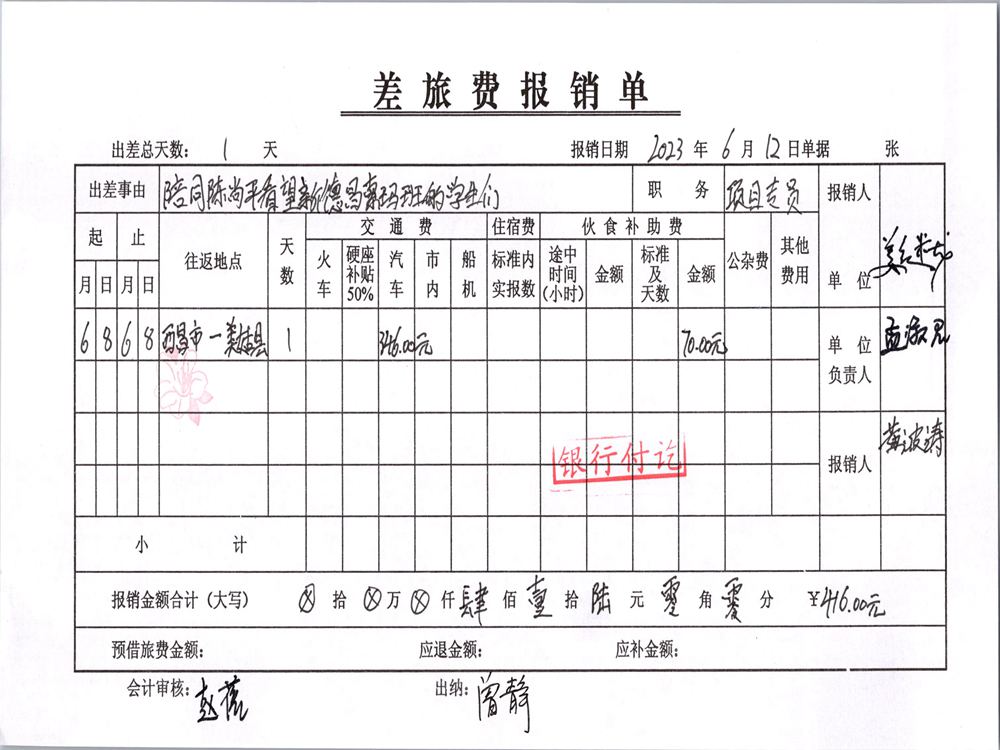 差旅费报销单
出差总天数： 1 天 报销日期 2023 年 6 月 12 日 单据 张
出差事由 陪同陈尚平看望新德昌惠玛班的学生们 职务 项目专员 报销人
起 止 往返地点 天数 交通费 住宿费 伙食补助费 公杂费 其他费用
月 日 月 日 火车 硬座补贴50% 汽车 市内 船机 标准内实报数 途中时间(小时) 金额 标准及天数 金额 单位
6 8 6 8 西昌市一美姑县 1 346.00元 70.00元 单位负责人
银行付讫 报销人 黄波涛
小计
报销金额合计（大写） ⊗ 拾 ⊗ 万 ⊗ 仟 肆 佰 壹 拾 陆 元 零 角 零 分 ¥416.00元
预借旅费金额： 应退金额： 应补金额：
会计审核： 出纳： 曾静